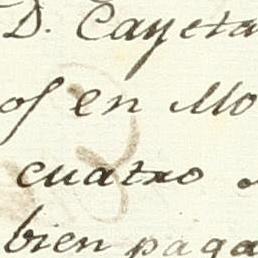 D. Cayeta
os en Mo
cuatro
bien paga